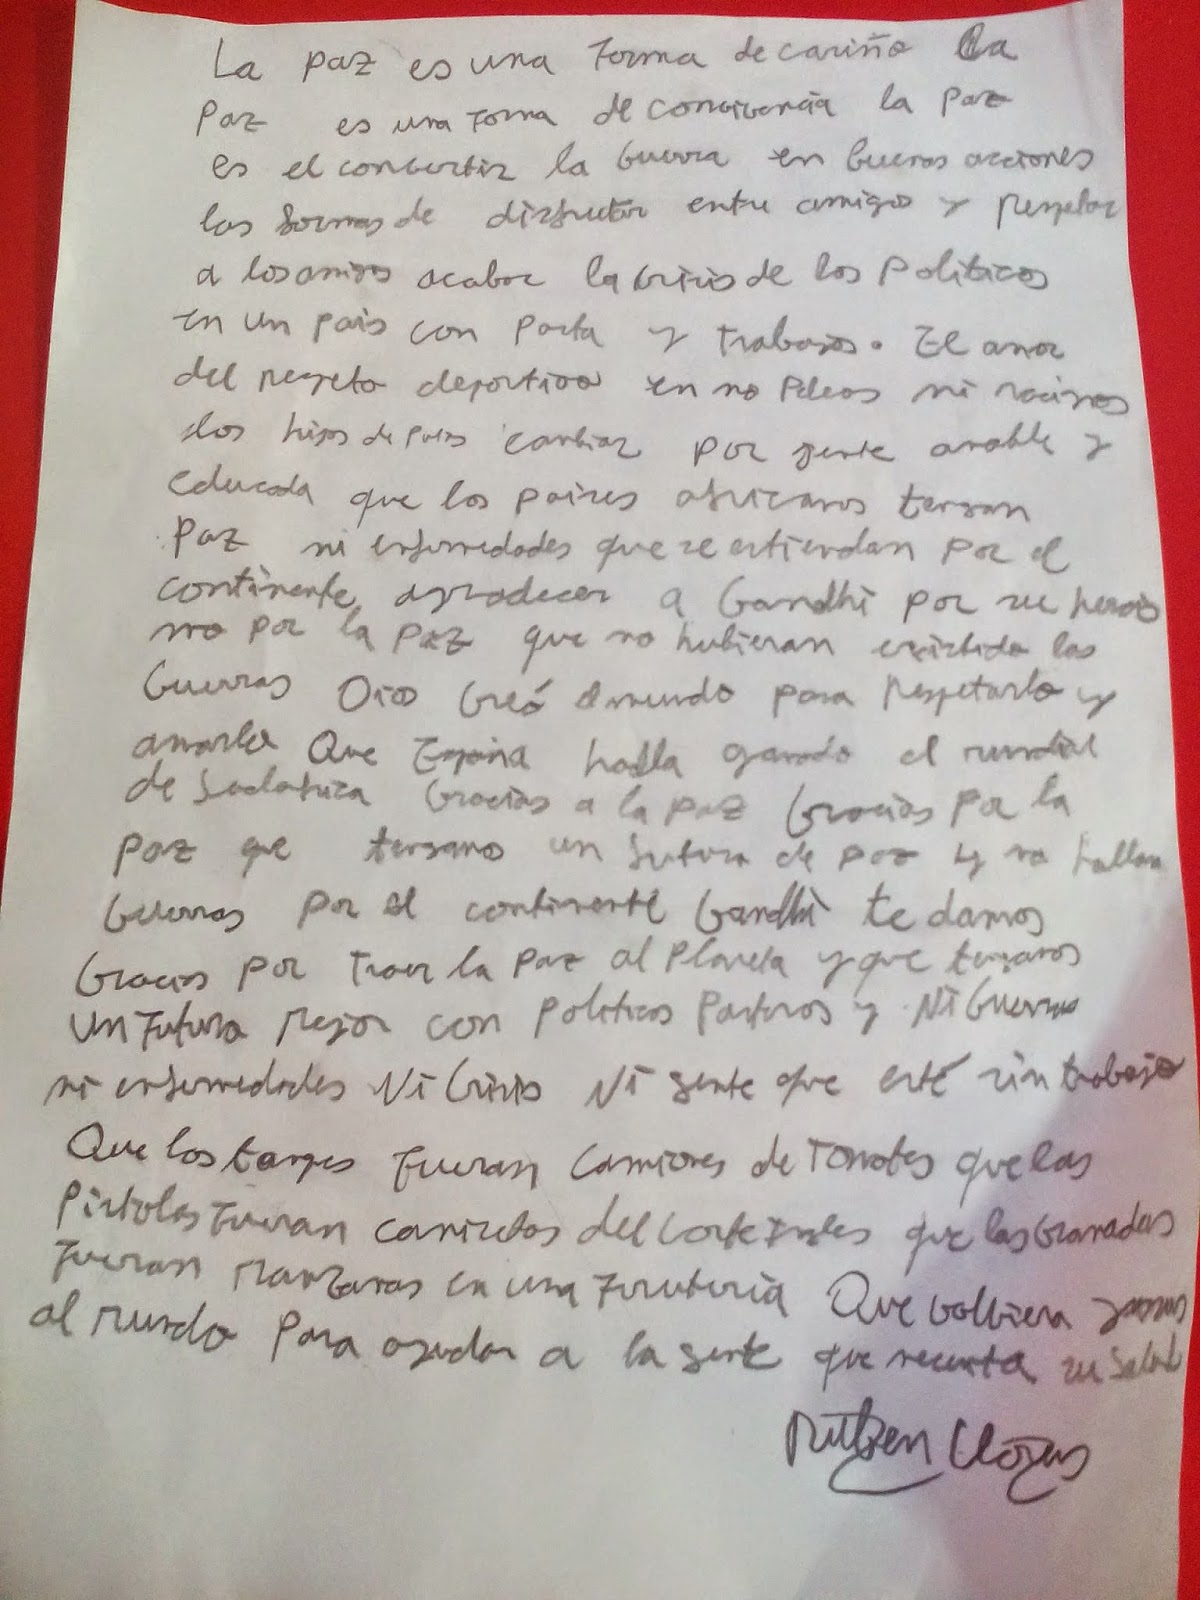 La paz es una forma de cariño La
paz es una forma de convivencia la paz
es el convertir la Guerra en buenas acciones
las formas de disfrutar entre amigos y respetar
a los amigos acabar la Crisis de los politicos
en un pais con pasta y trabajos. El amor
del respeto deportivo en no Peleas ni racismos
los hijos de putas cambiar por gente amable y
educada que los paises africanos tengan
Paz ni enfermedades que se extiendan por el
continente agradecer a Gandhi por su herois
mo por la paz que no hubieran existido las
Guerras Dios Creó el mundo para respetarlo y
amarlo Que España halla ganado el mundial
de Sudafrica Gracias a la paz Gracias por la
paz que tengamos un futuro de paz y no hallan
Guerras por el continente Gandhi te damos
Gracias por traer la paz al Planeta y que tengamos
un futuro mejor con politicos y Ni Guerras
ni enfermedades Ni Crisis Ni gente que esté sin trabajo
Que los tanques fueran Camiones de Tomates que las
Pistolas fueran camisetas del Corte Ingles que las Granadas
fueran Manzanas en una fruteria Que bolbiera
al mundo para ayudar a la gente que necesita su Salud
Ruben